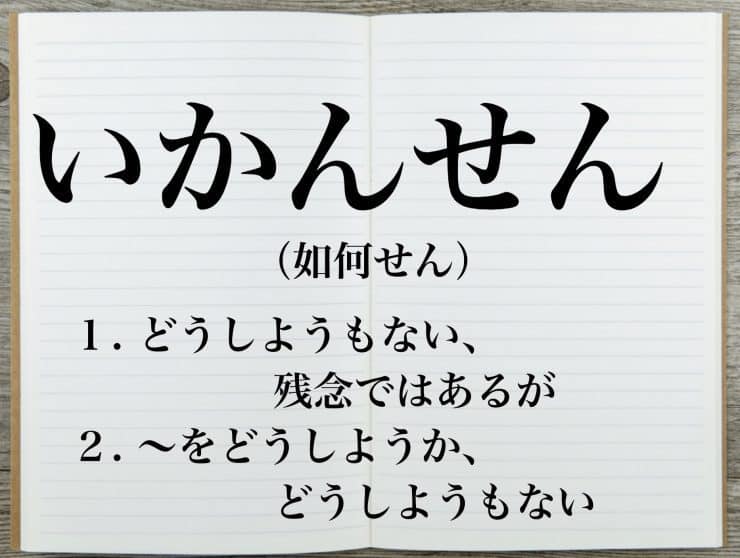 いかんせん
（如何せん）
１. どうしようもない、
残念ではあるが
２. ～をどうしようか、
どうしようもない